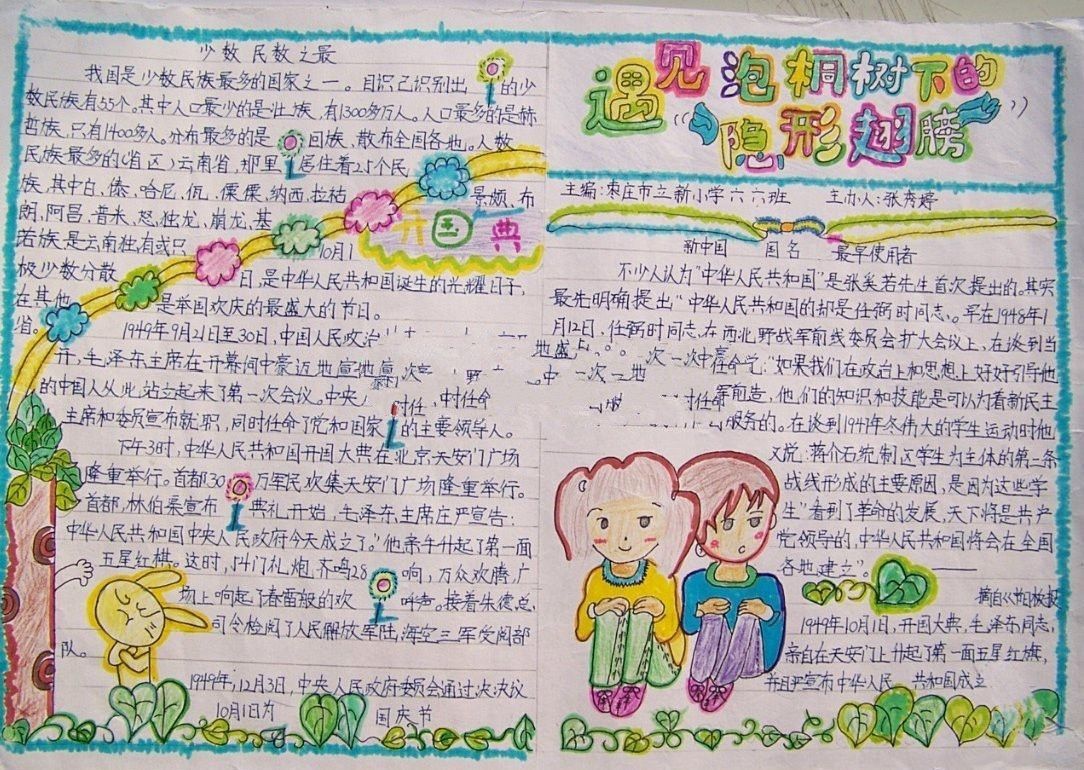 少数民数之最
我国是少数民族最多的国家之一。目识己识别出的少
数民族有55个。其中人口最少的是壮族,有1300多万人。人口最多的是赫
哲族,只有1400多人。分布最多的是回族,散布全国各地。人数
民族最多的(省区)云南省,那里居住着25个民
族,其中白、傣、哈尼、佤、傈僳、纳西、拉祜 景颇、布
朗、阿昌、普米、怒、独龙、崩龙、基
诺族是云南独有或只
极少数分散
在其他
省。
开国 典
10月1
日,是中华人民共和国诞生的光耀日子,
是举国欢庆的最盛大的节日。
1949年9月21日至30日,中国人民政治
开,毛泽东主席在开幕词中豪迈地宣
的中国人从此站立起来了第一次会议。中央人
主席和委员宣布就职,同时任命了党和国家的主要领导人。
下午3时,中华人民共和国开国大典在北京天安门广场
隆重举行。首都30万军民欢集天安门广场隆重举行。
首都,林伯渠宣布典礼开始,毛泽东主席庄严宣告:
中华人民共和国中央人民政府今天成立了。"他亲手升起了第一面
五星红棋。这时,54门礼炮齐鸣28响,万众欢腾,广
场上响起了春雷般的欢呼声。接着朱德总
司令检阅了人民解放军陆,海空三军受阅部
队。
1949年,12月3日,中央人民政府委员会通过决决议
10月1日为 国庆节
遇见泡桐树下的
隐形翅膀
主编:枣庄市立新小学六六班 主办人:张秀婷
新中国 国名 最早使用者
不少人认为"中华人民共和国"是张奚若先生首次提出的。其实
最先明确提出"中华人民共和国的却是任弼时同志。早在1948年1
月12日,任弼时同志,在西北野战军前线委员会扩大会议上,在谈到当
"如果我们在政治上和思想上好好引导他
他们的知识和技能是可以为看新民主
服务的。在谈到1947年冬伟大的学生运动时他
又说:蒋介石统制区学生为主体的第二条
战线形成的主要原因,是因为这些学
生"看到了革命的发展,天下将是共产
党领导的,中华人民共和国将会在全国
各地建立"。
1949年10月1日,开国大典,毛泽东同志,
亲自在天安门上升起了第一面五星红旗,
并且严宣布中华人民 共和国成立